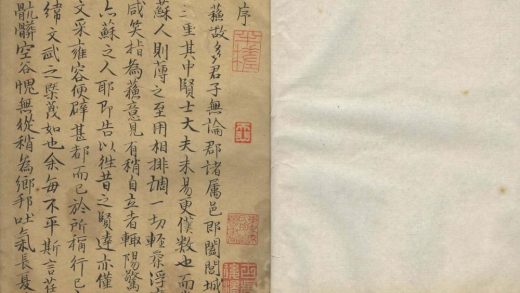 序
蘇故多君子無論郡諸屬邑即闔閭城
三里其中賢士大夫未易更僕數也而
蘇人則薄之至用相排調一切輕薄浮
咸笑指為蘇意見有稍自立者輒陽驚
蘇之人耶即告以往昔之賢達亦僅
文采雍容便辟甚都而已於所稱行己
緯文武之槩蔑如也余每不平斯言
骯髒空谷愧無從稍為鄉邦吐氣長